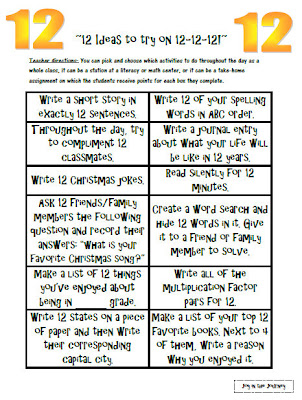 12
~12 Ideas to try on 12-12-12!~
12
Teacher directions: You can pick and choose which activities to do throughout the day as a
whole class, it can be a station at a literacy or math center, or it can be a take-home
assignment on which the students receive points for each box they complete.
Write a short story in
exactly 12 sentences.
Write 12 of your spelling
words in ABC order.
Throughout the day, try
to compliment 12
classmates.
Write a journal entry
about what your life will
be like in 12 years.
Write 12 Christmas jokes.
Read silently for 12
minutes.
Ask 12 friends/family
members the following
question and record their
answers: "What is your
favorite Christmas song?"
Create a word search and
hide 12 words in it. Give
it to a friend or family
member to solve.
Make a list of 12 things
you've enjoyed about
being in _____ grade.
Write all of the
multiplication factor
pairs for 12.
Write 12 states on a piece
of paper and then write
their corresponding
capital city.
Make a list of your top 12
favorite books. Next to 4
of them, write a reason
why you enjoyed it.
Joy in the Journey